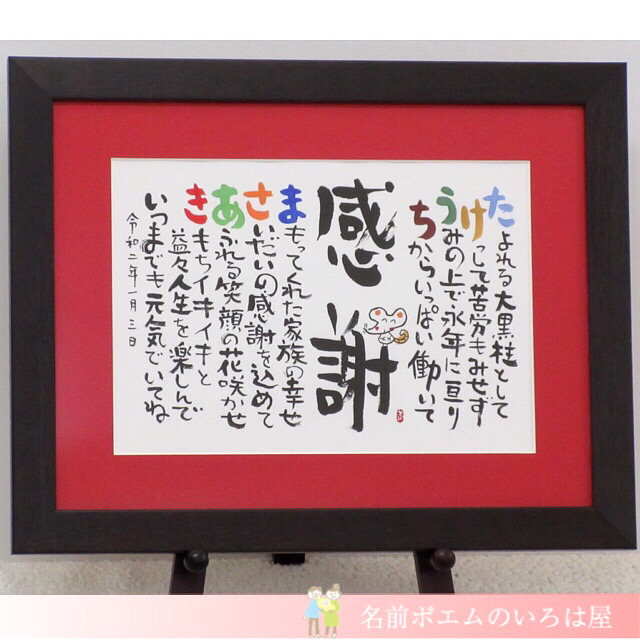 たよれる大黒柱として
けっして苦労もみせず
うみの上で永年に亘り
ちからいっぱい働いて
感謝
まもってくれた家族の幸せ
さいだいの感謝を込めて
あふれる笑顔の花咲かせ
きもちイキイキと
益々人生を楽しんで
いつまでも元気でいてね
令和二年一月三日
名前ポエムのいろは屋